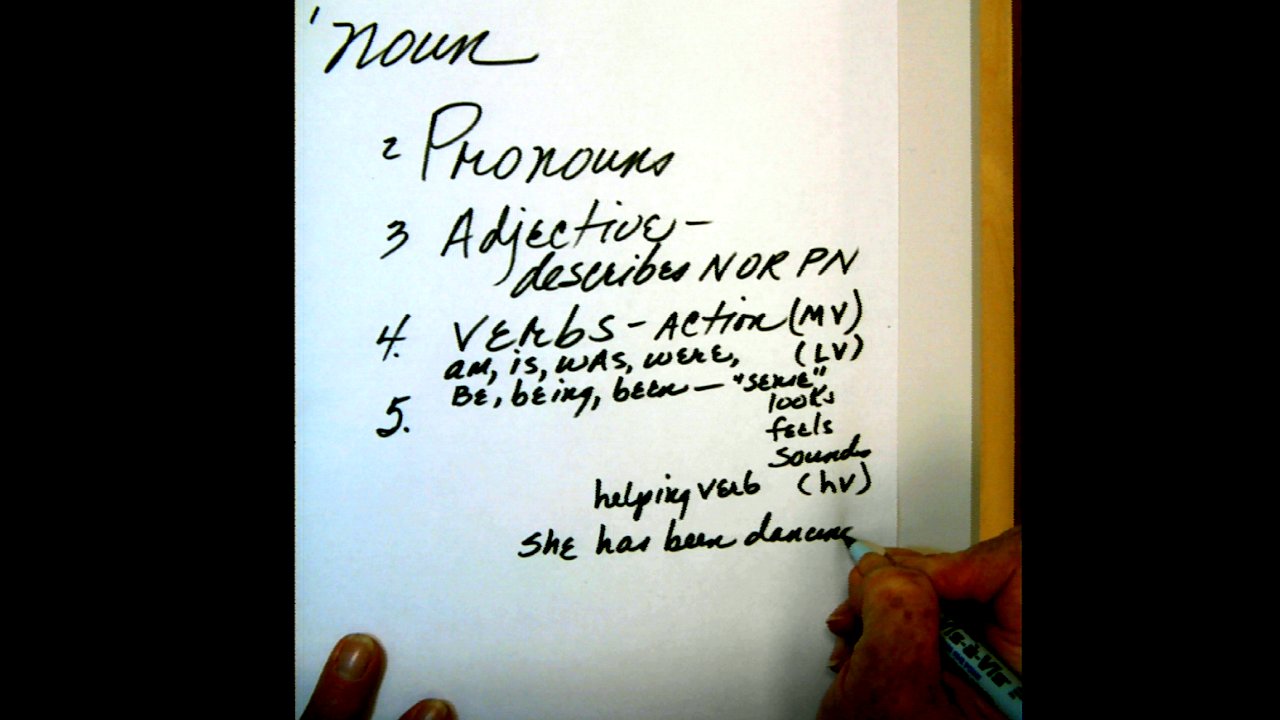 1 noun
2 Pronouns
3 Adjective -
describes N OR PN
4. VERbS - ACtION (MV)
am, is, WAS, WERE, (LV)
BE, bEING, bEEN - "SENSE"
5. looks
feels
sounds
helping VERb (hV)
She has been dancing
Vis-à-Vis